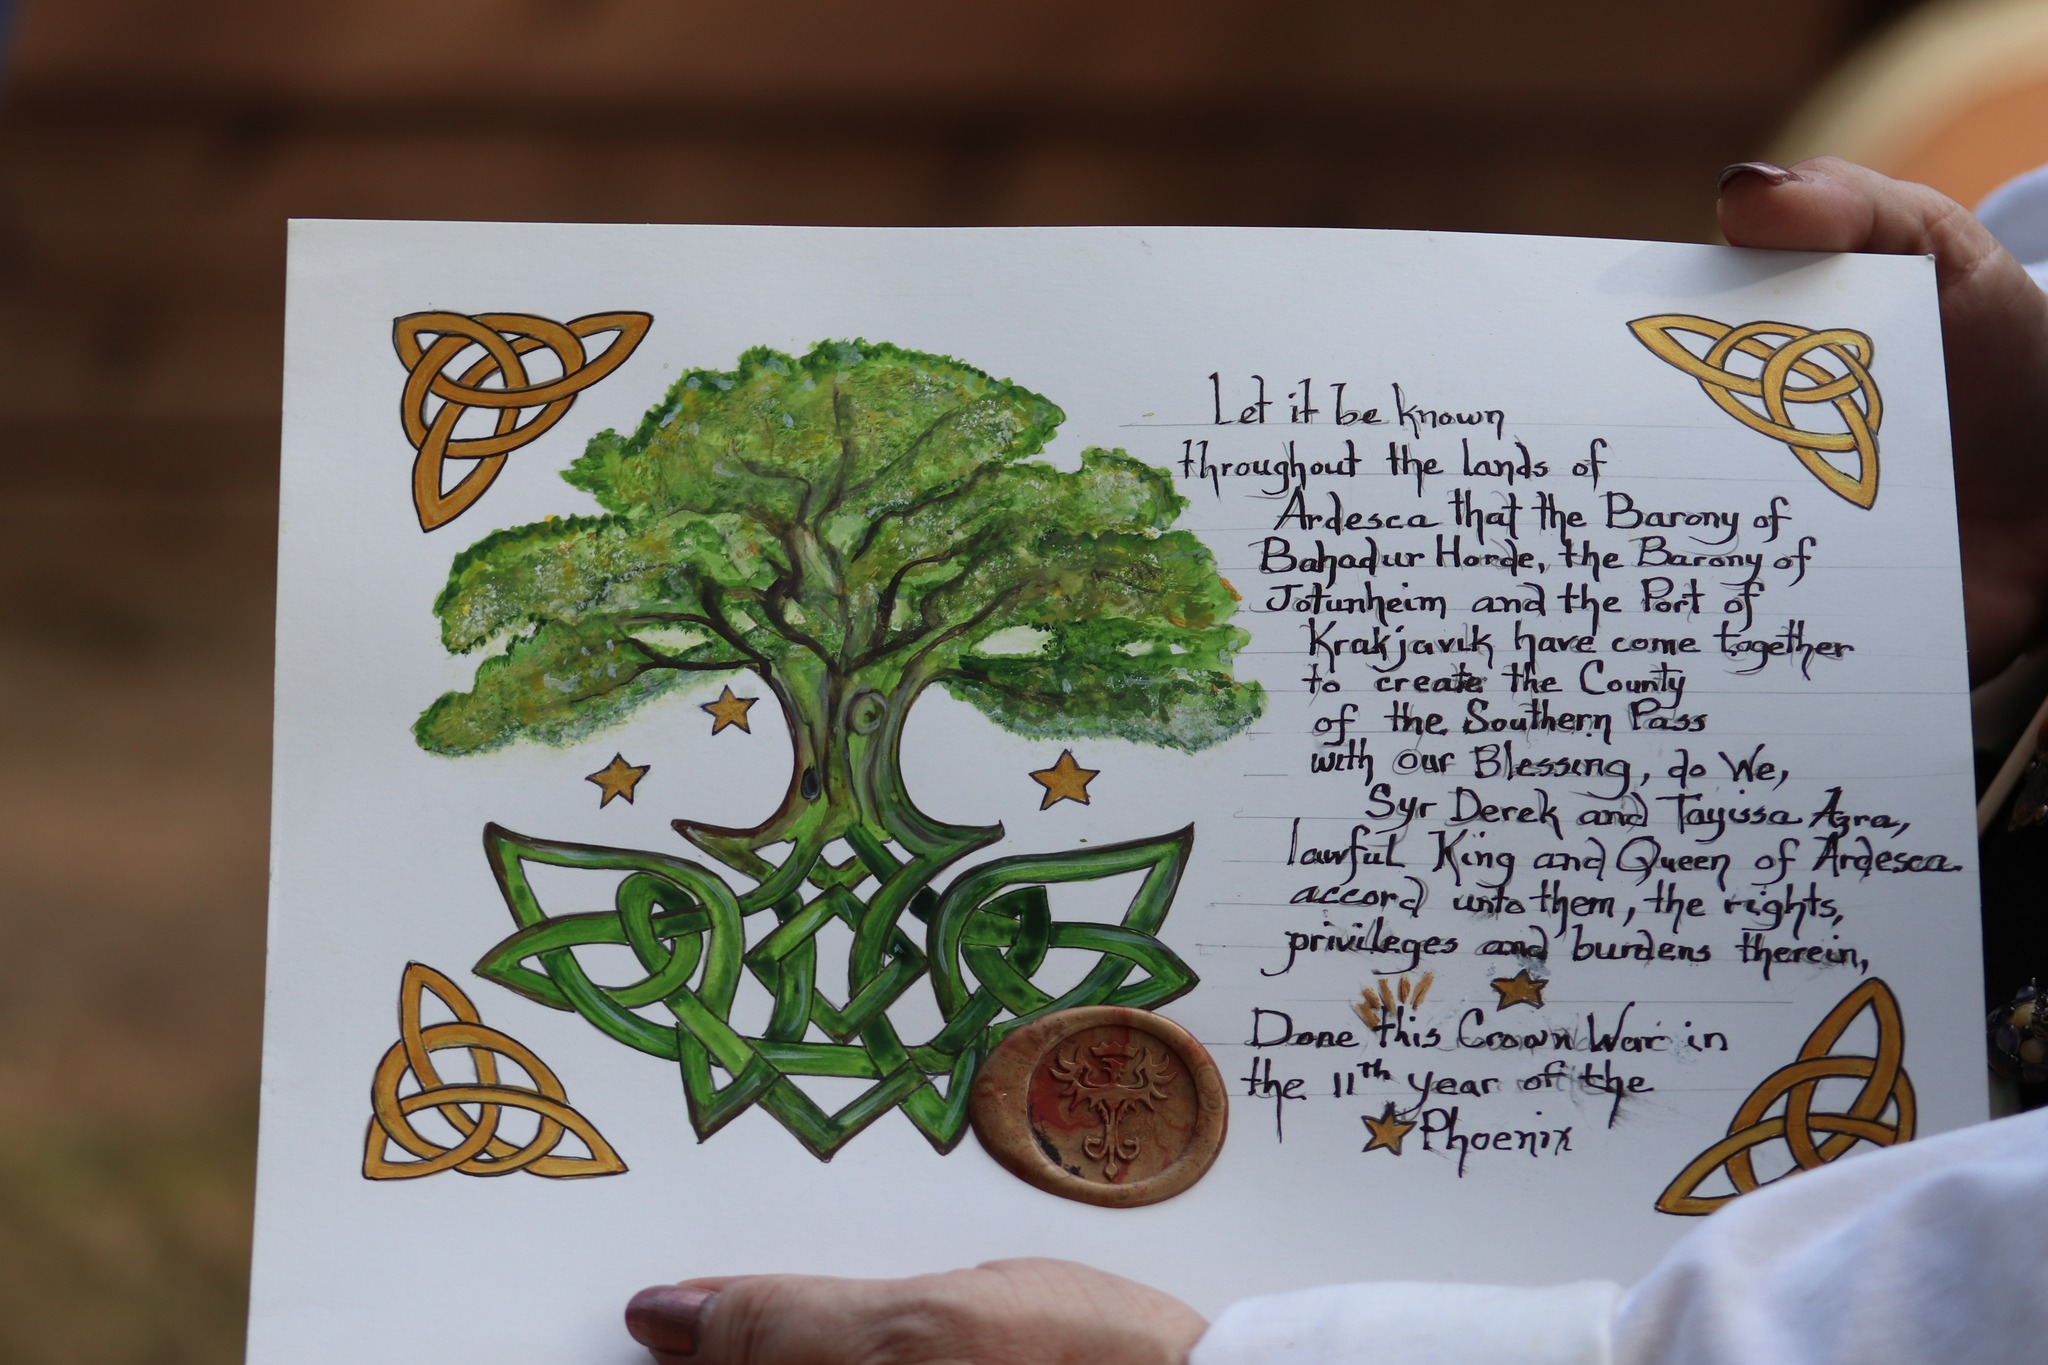 Let it be known
throughout the lands of
Ardesca that the Barony of
Bahadur Horde, the Barony of
Jotunheim and the Port of
Krakjavik have come together
to create the County
of the Southern Pass
with our Blessing, do We,
Syr Derek and Tayissa Azra,
lawful King and Queen of Ardesca.
accord unto them, the rights,
privileges and burdens therein,
Done this Crown War in
the 11th year of the
Phoenix